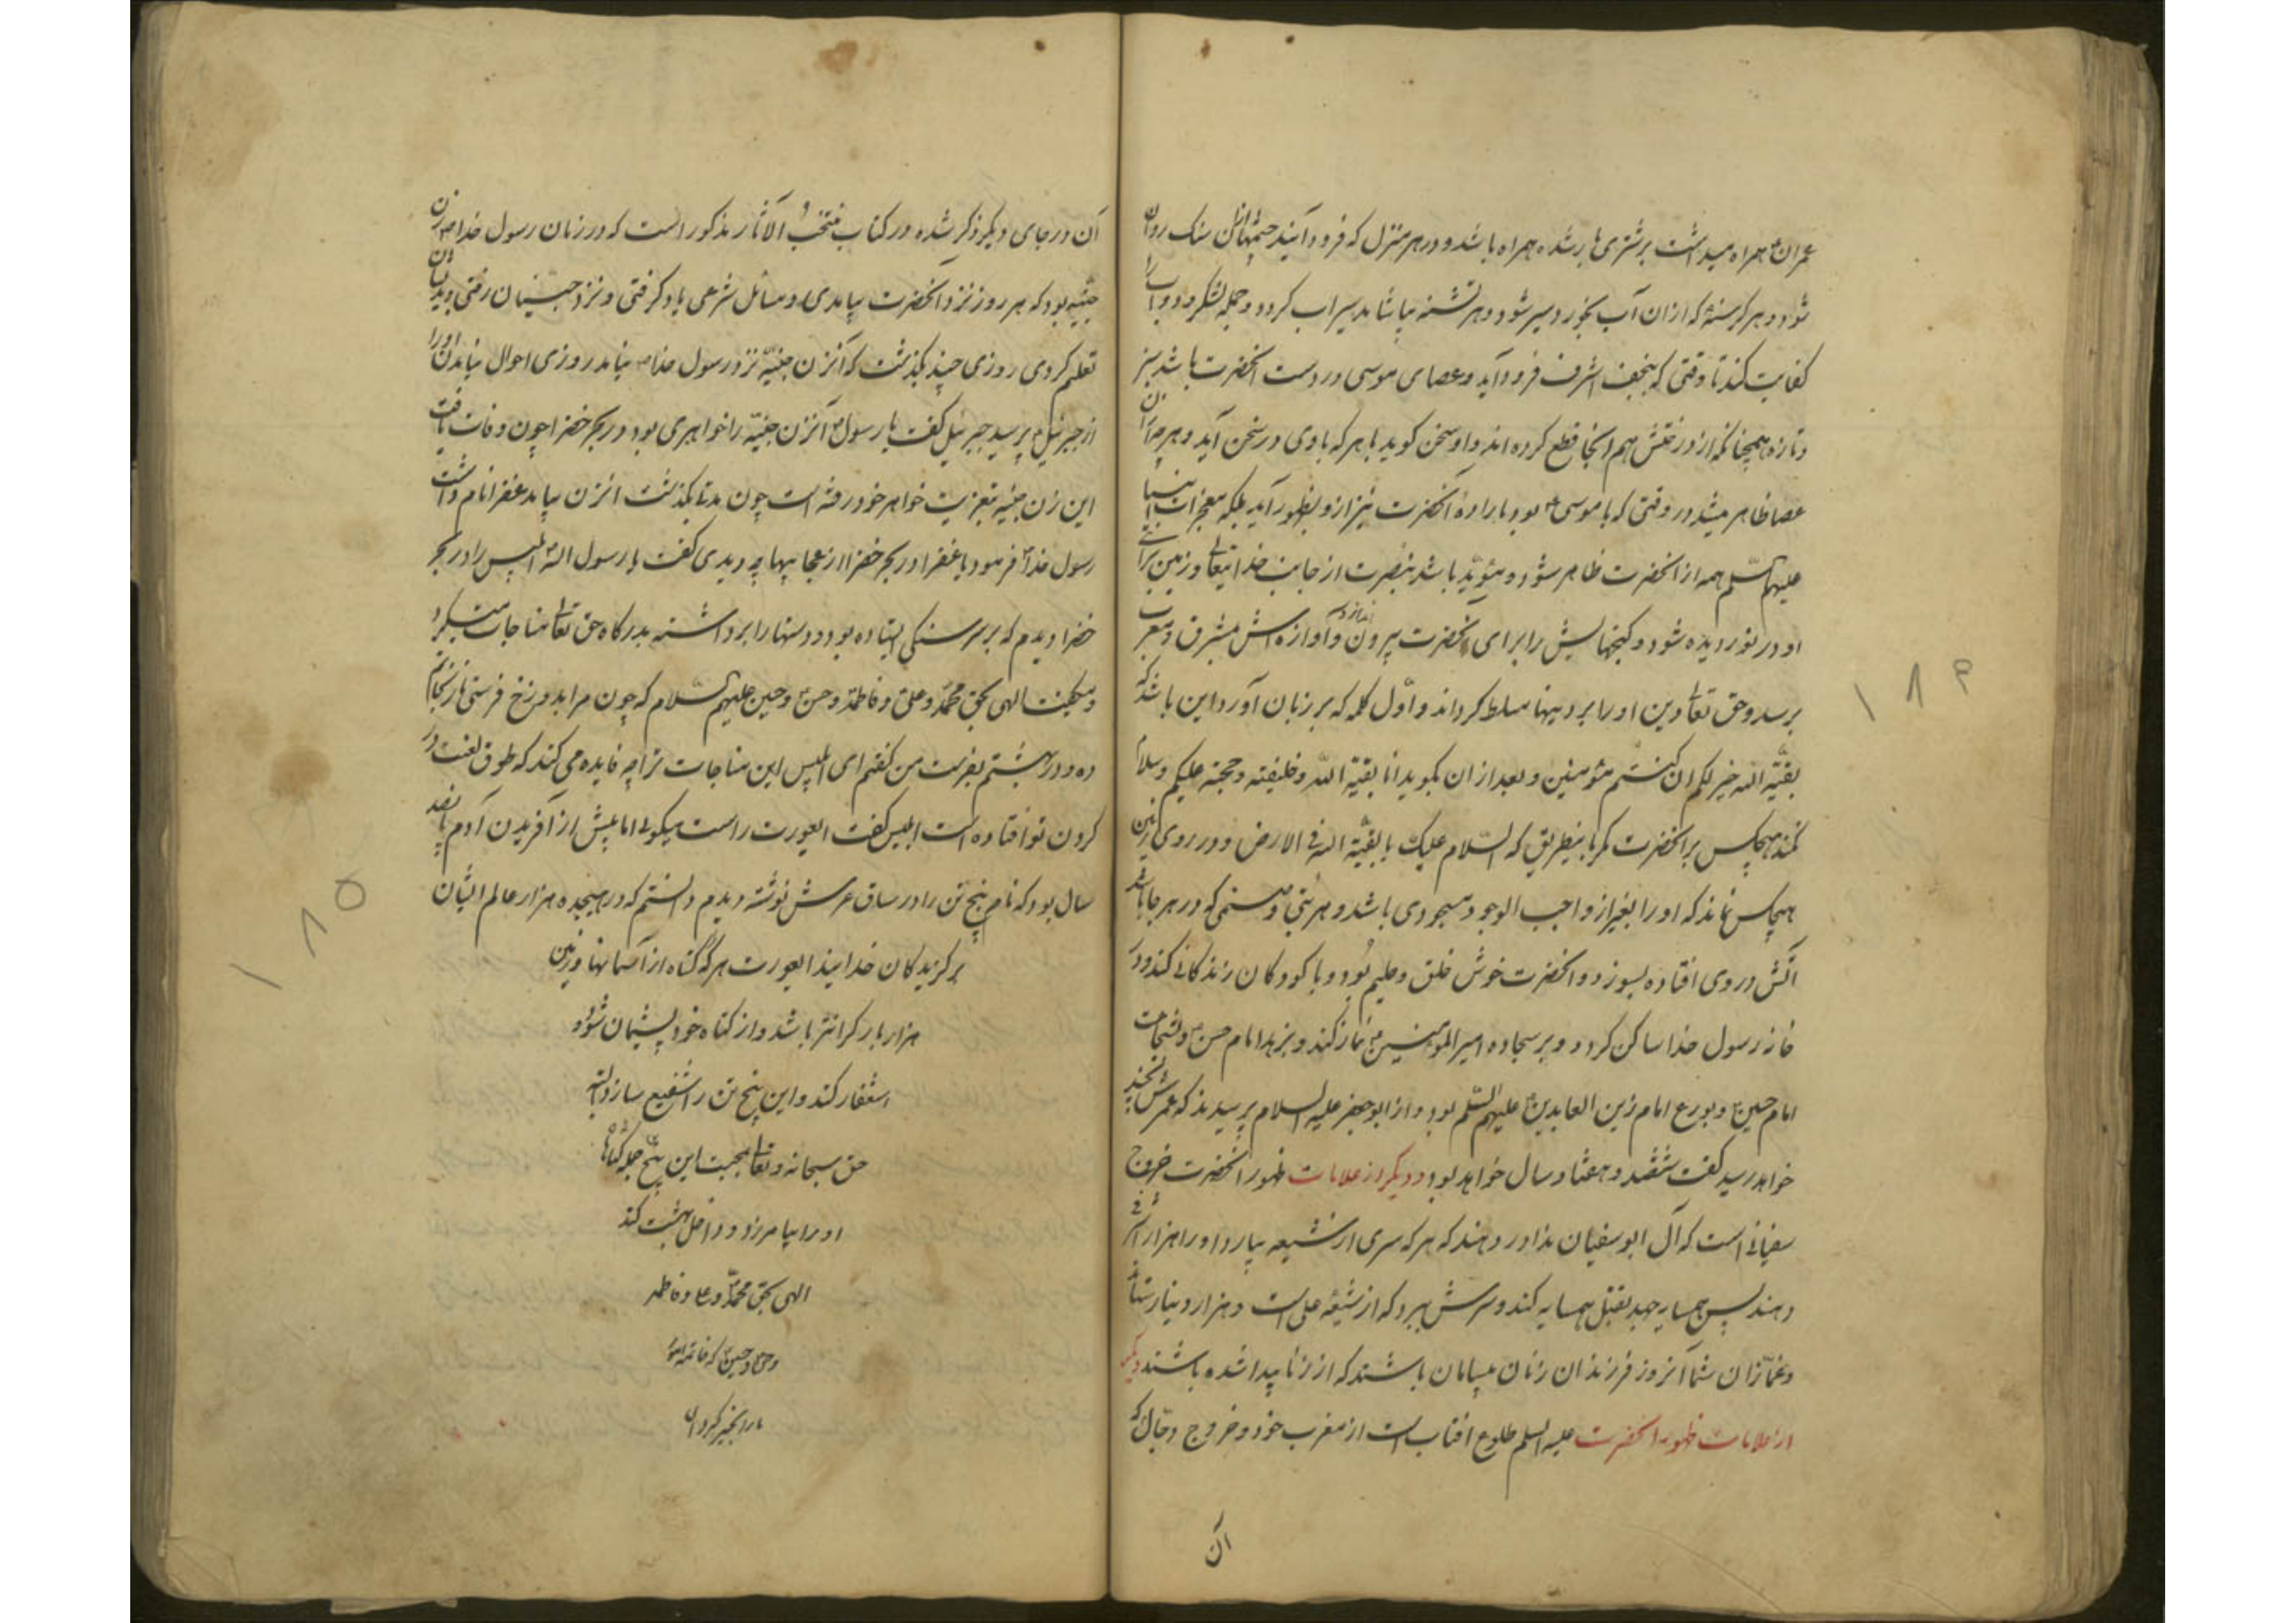 عمران ع همراه میداشت بر شتری بار شده همراه باشد و در هر منزل که فرود آیند چشمها از آن سنک روان
شود و هر کرسنهٔ که ازان آب بخورد سیر شود و هر تشنه بیاشامد سیراب کردد و جمله لشکر و دواب را
کفایت کند تا وقتی که بنجف اشرف فرود آید و عصای موسی در دست انحضرت باشد سبز
و تازه همچنانکه از درختش هم انجا قطع کرده اند و او سخن کوید با هر که با وی در سخن آید و هر چه از آن
عصا ظاهر میشد در وقتی که با موسی ع بود باراده آنحضرت نیز ازو بظهور آید بلکه معجزات انبیا
علیهم السلم همه از انحضرت ظاهر شود و مؤید باشد بنصرت از جانب خدایتعالی و زمین برای
او در نوردیده شود و کنجهایش را برای انحضرت بیرون اندازد و آوازه اش بمشرق و مغرب
برسد و حق تعالی دین او را بر دینها مسلط کرداند و اول کلمه که بر زبان آورد این باشد که
بقیة الله خیر لکم ان کنتم مؤمنین و بعد ازان بکوید انا بقیة الله و خلیفته و حجته علیکم و سلام
نکند هیچکس بر انحضرت مکر باینطریق که السلام علیک یا بقیة الله فی الارض و در روی زمین
هیچکس نماند که او را بغیر از واجب الوجود مسجودی باشد و هر بتی و صنمی که در هر جا باشد
آتش در وی افتاده بسوزد و انحضرت خوش خلق و حلیم بود و با کودکان زندکانی کند و در
خانه رسول خدا ساکن کردد و بر سجاده امیر المومنین ع نماز کند و بزهد امام حسن ع و شجاعت
امام حسین ع و بورع امام زین العابدین ع علیهم السلم بود و از ابو جعفر علیه السلام پرسیدند که عمرش بچند
خواهد رسید کفت ششصد و هفتاد سال خواهد بود و دیکر از علامات ظهور انحضرت خروج
سفیانی است که آل ابو سفیان ندا در دهند که هر که سری از شیعه بیارد او را هزار اشرفی
دهند پس همسایه جهد بقتل همسایه کند و سرش ببرد که از شیعه علی است و هزار دینار ستاند
و غمازان شما آنروز فرزندان زنان بیسامان باشند که از زنا پیدا شده باشند دیکر
از علامات ظهور انحضرت علیه السلم طلوع افتاب است از مغرب خود و خروج دجال که
آن
۱۸۴
آن در جای دیکر ذکر شده در کتاب منتخب الآثار مذکور است که در زمان رسول خدا ص زن
جنیه بود که هر روز نزد انحضرت بیامدی و مسائل شرعی یاد کرفتی و نزد جنیان رفتی و بدیشان
تعلیم کردی روزی چند بکذشت که آنزن جنیه نزد رسول خدا ص نیامد روزی احوال نیامدن او را
از جبرئیل ع پرسید جبرئیل کفت یا رسول الله آنزن جنیه را خواهری بود در بحر خضرا چون وفات یافت
این زن جنیه بتعزیت خواهر خود رفته است چون مدتها بکذشت انزن بیامد عفرا نام داشت
رسول خدا ص فرمود یا عفرا در بحر خضرا از عجایبها چه دیدی کفت یا رسول الله ابلیس را در بحر
خضرا دیدم که بر سر سنکی ایستاده بود و دستها را برداشته بدرکاه حق تعالی مناجات میکرد
و میکفت الهی بحق محمد و علی و فاطمه و حسن و حسین علیهم السلام که چون مرا بدوزخ فرستی باز نجاتم
ده و در بهشتم بفرست من کفتم ای ابلیس این مناجات ترا چه فایده می کند که طوق لعنت در
کردن تو افتاده است ابلیس کفت ایعورت راست میکویی اما پیش از آفریدن آدم پانصد
سال بود که نام پنج تن را در ساق عرش نوشته دیدم دانستم که در هیجده هزار عالم ایشان
برکزیدکان خدایند ایعورت هر که کناه از آسمانها و زمین
هزار بار کرانتر باشد و از کناه خود پشیمان شود و
استغفار کند و این پنج تن را شفیع سازد البته
حق سبحانه و تعالی بحجت این پنج جمله کناها
او را بیامرزد و داخل بهشت کند
الهی بحق محمد و علی و فاطمه
و حسن و حسین که خاتمه امور
ما را بخیر کردان
۱۸۵